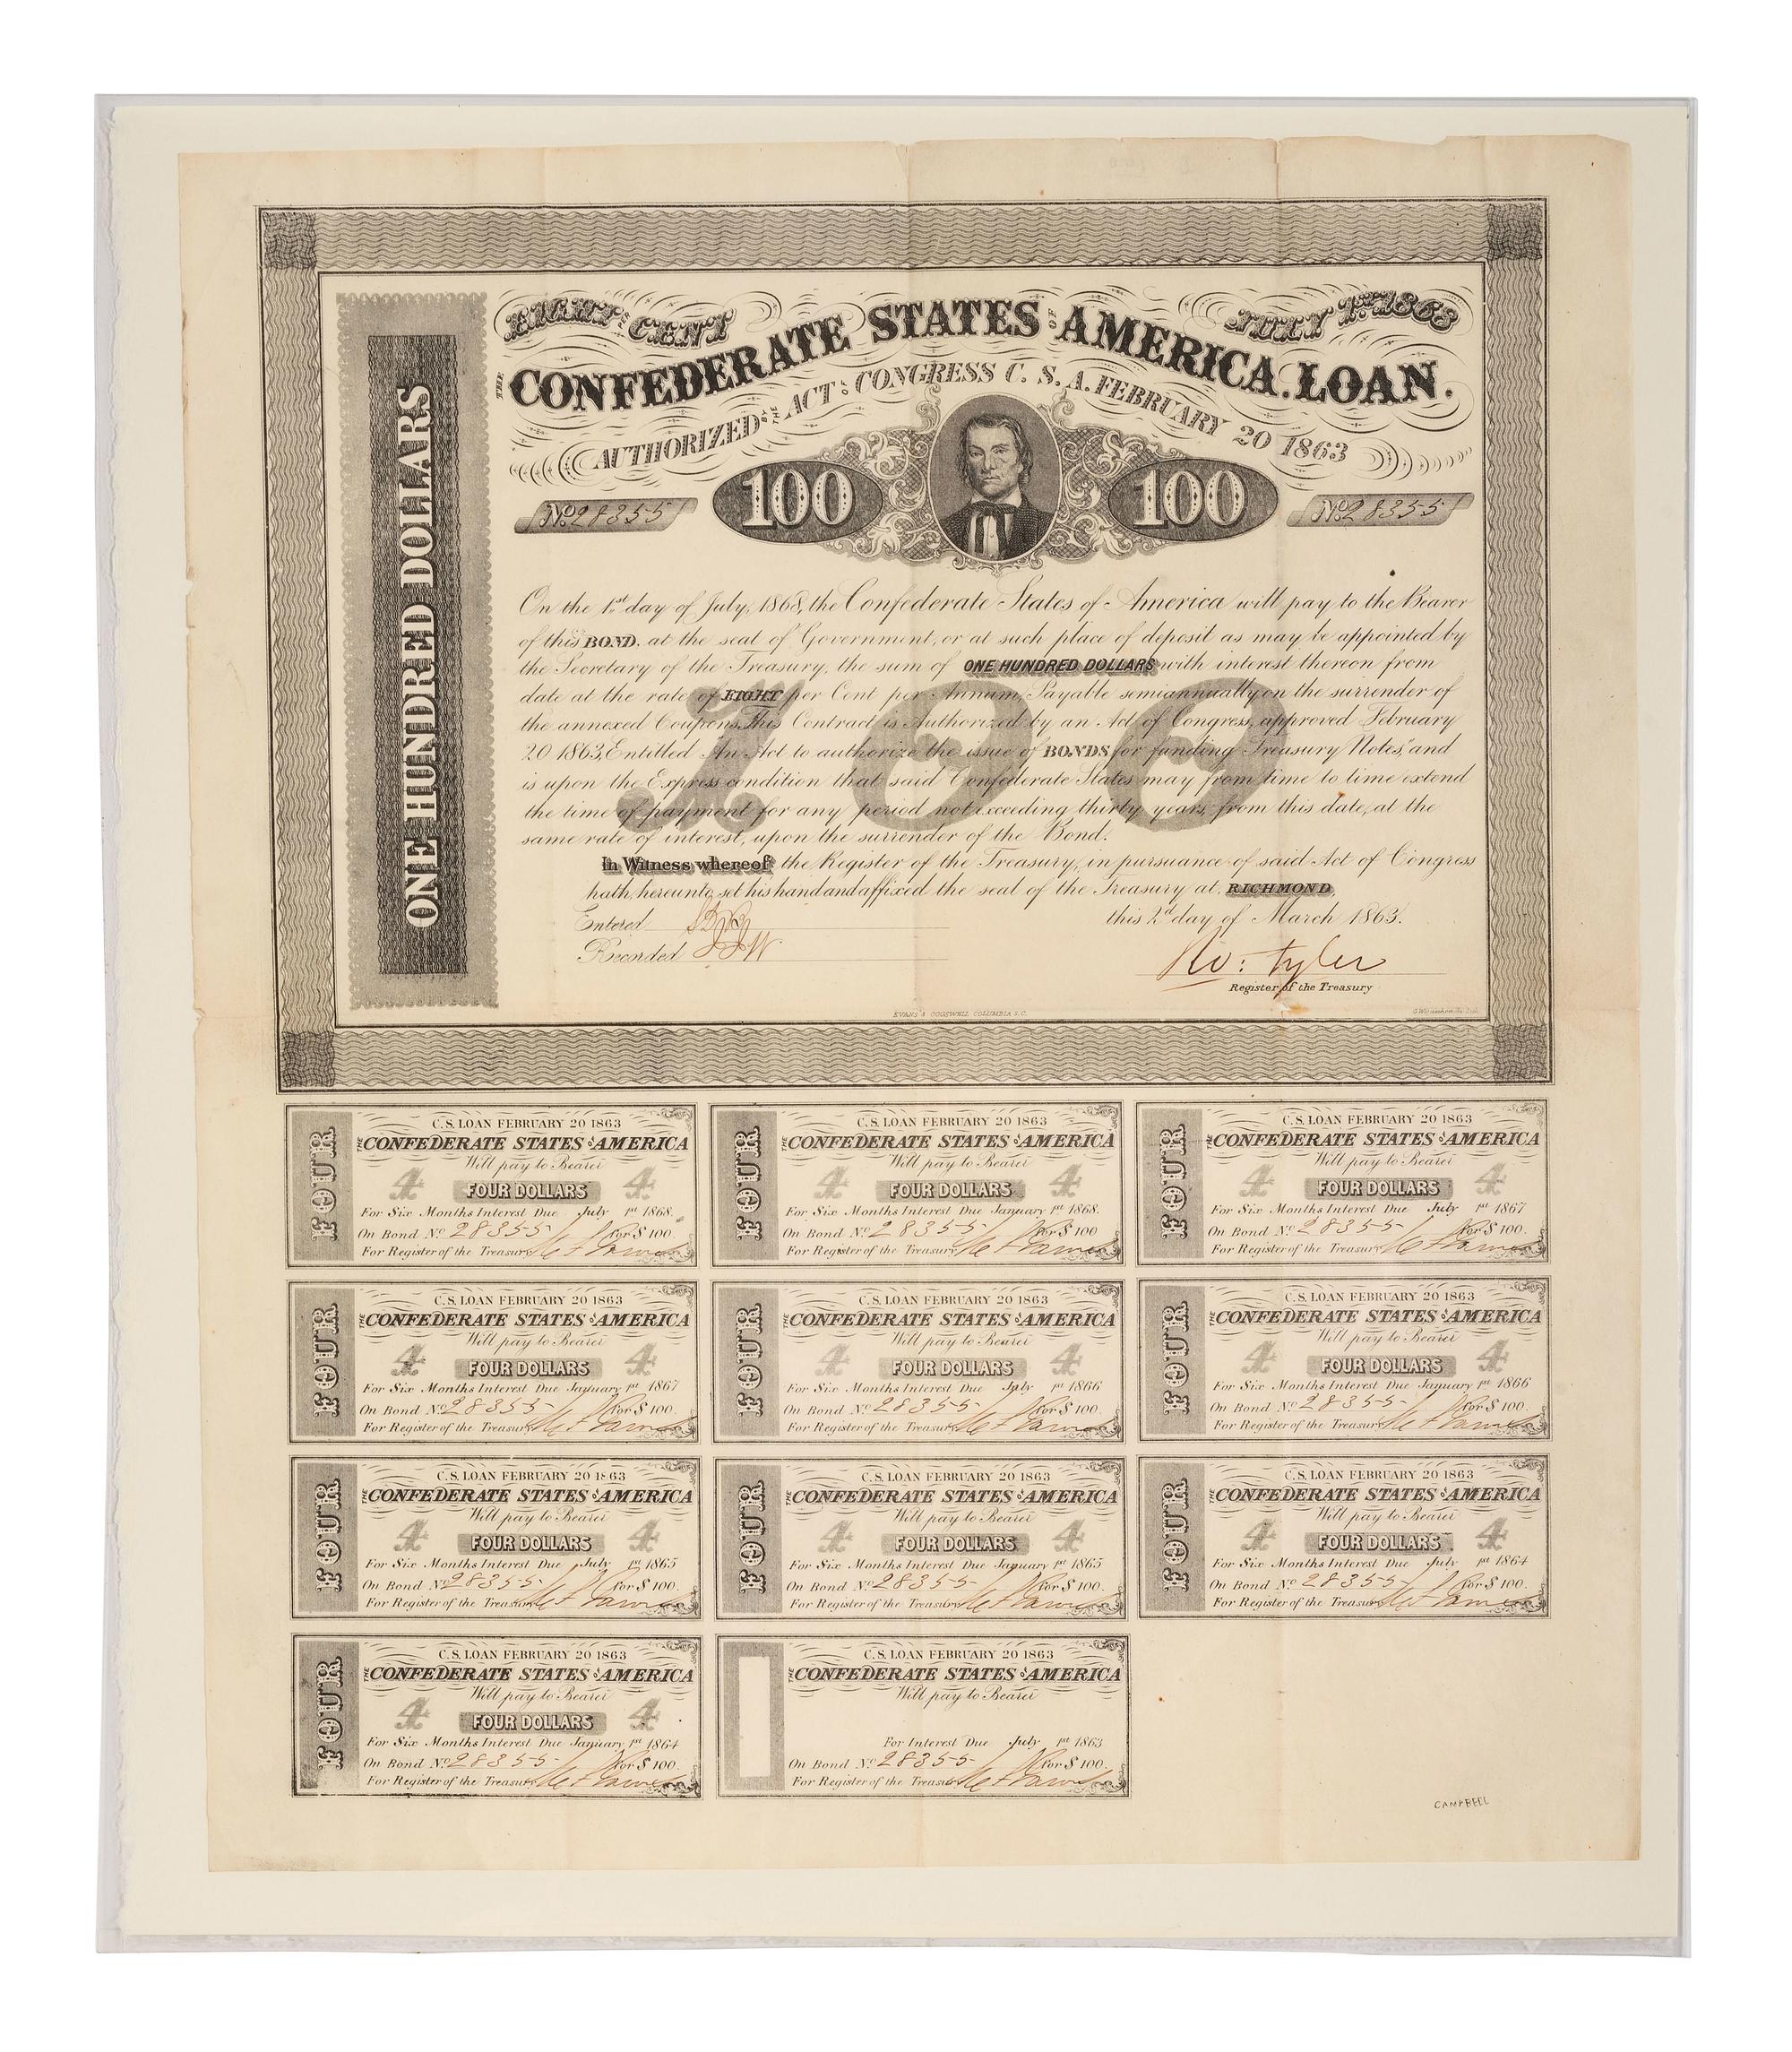 EIGHT PER CENT
JULY 1ST 1868
THE CONFEDERATE STATES OF AMERICA. LOAN.
AUTHORIZED BY THE ACT OF CONGRESS C. S. A. FEBRUARY 20 1863
ONE HUNDRED DOLLARS
No. 28355
100
100
No. 28355
On the 1st day of July, 1868, the Confederate States of America will pay to the Bearer
of this BOND, at the seat of Government, or at such place of deposit as may be appointed by
the Secretary of the Treasury, the sum of ONE HUNDRED DOLLARS with interest thereon from
date at the rate of EIGHT per Cent per Annum, Payable semiannually on the surrender of
the annexed Coupons. This Contract is Authorized by an Act of Congress, approved February
20 1863, Entitled "An Act to authorize the issue of BONDS for funding Treasury Notes," and
is upon the Express condition that said Confederate States may from time to time extend
the time of payment for any period not exceeding thirty years from this date, at the
same rate of interest, upon the surrender of the Bond.
100
In Witness whereof the Register of the Treasury, in pursuance of said Act of Congress
hath, hereunto set his hand and affixed the seal of the Treasury at RICHMOND,
this 2d day of March 1863.
Entered
Recorded
Ro: Tyler
Register of the Treasury
EVANS & COGSWELL COLUMBIA S.C.
C.S. LOAN FEBRUARY 20 1863
THE CONFEDERATE STATES OF AMERICA
Will pay to Bearer
4 FOUR DOLLARS 4
For Six Months Interest Due July 1st 1868.
On Bond No 28355 For $ 100
For Register of the Treasury
FOUR
C.S. LOAN FEBRUARY 20 1863
THE CONFEDERATE STATES OF AMERICA
Will pay to Bearer
4 FOUR DOLLARS 4
For Six Months Interest Due January 1st 1868.
On Bond No 28355 For $ 100
For Register of the Treasury
FOUR
C.S. LOAN FEBRUARY 20 1863
THE CONFEDERATE STATES OF AMERICA
Will pay to Bearer
4 FOUR DOLLARS 4
For Six Months Interest Due July 1st 1867
On Bond No 28355 For $ 100.
For Register of the Treasury
FOUR
C.S. LOAN FEBRUARY 20 1863
THE CONFEDERATE STATES OF AMERICA
Will pay to Bearer
4 FOUR DOLLARS 4
For Six Months Interest Due January 1st 1867
On Bond No 28355 For $ 100.
For Register of the Treasury
FOUR
C.S. LOAN FEBRUARY 20 1863
THE CONFEDERATE STATES OF AMERICA
Will pay to Bearer
4 FOUR DOLLARS 4
For Six Months Interest Due July 1st 1866
On Bond No 28355 For $ 100.
For Register of the Treasury
FOUR
C.S. LOAN FEBRUARY 20 1863
THE CONFEDERATE STATES OF AMERICA
Will pay to Bearer
4 FOUR DOLLARS 4
For Six Months Interest Due January 1st 1866
On Bond No 28355 For $ 100.
For Register of the Treasury
FOUR
C.S. LOAN FEBRUARY 20 1863
THE CONFEDERATE STATES OF AMERICA
Will pay to Bearer
4 FOUR DOLLARS 4
For Six Months Interest Due July 1st 1865
On Bond No 28355 For $ 100.
For Register of the Treasury
FOUR
C.S. LOAN FEBRUARY 20 1863
THE CONFEDERATE STATES OF AMERICA
Will pay to Bearer
4 FOUR DOLLARS 4
For Six Months Interest Due January 1st 1865
On Bond No 28355 For $ 100.
For Register of the Treasury
FOUR
C.S. LOAN FEBRUARY 20 1863
THE CONFEDERATE STATES OF AMERICA
Will pay to Bearer
4 FOUR DOLLARS 4
For Six Months Interest Due July 1st 1864
On Bond No 28355 For $ 100.
For Register of the Treasury
FOUR
C.S. LOAN FEBRUARY 20 1863
THE CONFEDERATE STATES OF AMERICA
Will pay to Bearer
4 FOUR DOLLARS 4
For Six Months Interest Due January 1st 1864
On Bond No 28355 For $ 100.
For Register of the Treasury
FOUR
C.S. LOAN FEBRUARY 20 1863
THE CONFEDERATE STATES OF AMERICA
Will pay to Bearer
For Interest Due July 1st 1863
On Bond No 28355 For $ 100.
For Register of the Treasury
CAMPBELL